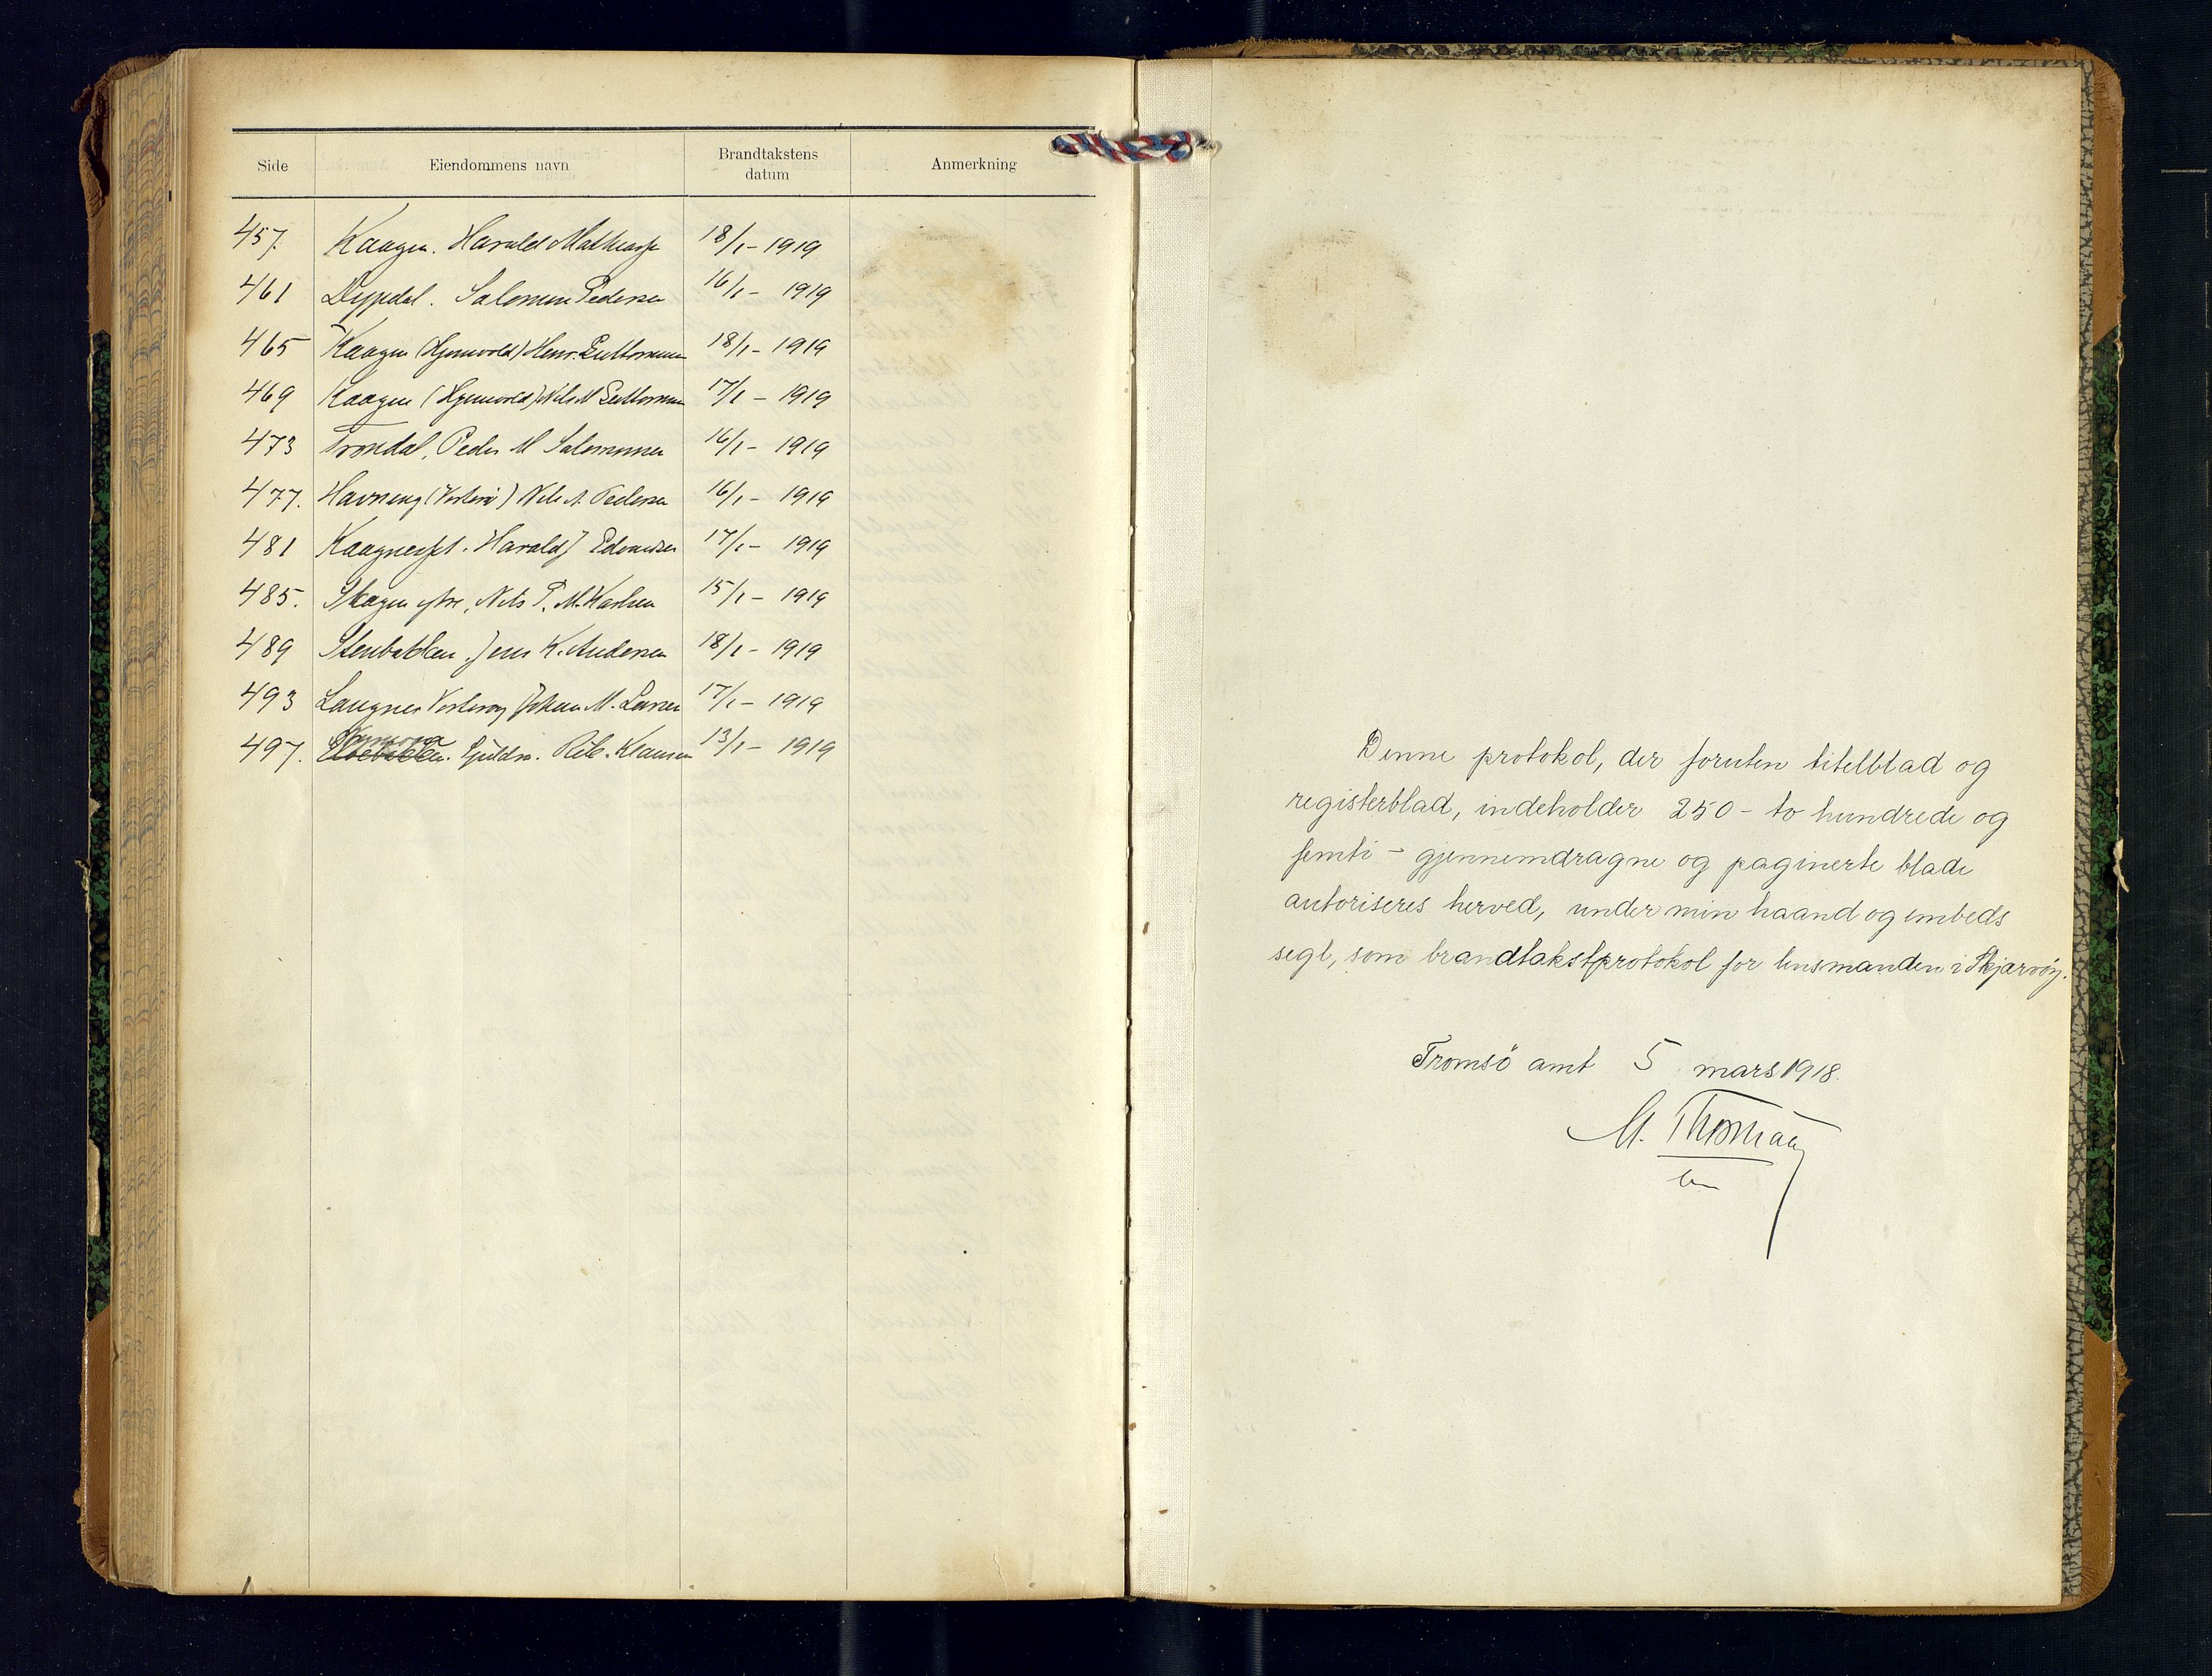 Side Eiendommens navn Brandtakstens datum Anmerkning
457. Kaagen. Harald 18/1 - 1919
461 Dypdal. Salomon Pedersen 16/1 - 1919
465 Kaagen Henr. 18/1 - 1919
469 Kaagen Nils M 17/1 - 1919
473 Trondal, Peder M Salomonsen 16/1 - 1919
477. Havneng Nils A. Pedersen 16/1 - 1919
481 Kaagneset. Harald J Edvardsen 17/1 - 1919
485. Skagen, Nils P. M. Karlsen 15/1 - 1919
489 Stenbakken. Jens K. Andersen 18/1 - 1919
493 Langnes Vorterøy Johan M. Larsen 17/1 - 1919
497. Klausen 13/1 - 1919
Denne protokol, der foruten titelblad og
registerblad, indeholder 250 - to hundrede og
femti - gjennemdragne og paginerte blade
autoriseres herved, under min haand og embeds
segl, som brandtakstprotokol for lensmanden i Skjærvöy.
Tromsö amt 5 mars 1918.
M. Thomaas